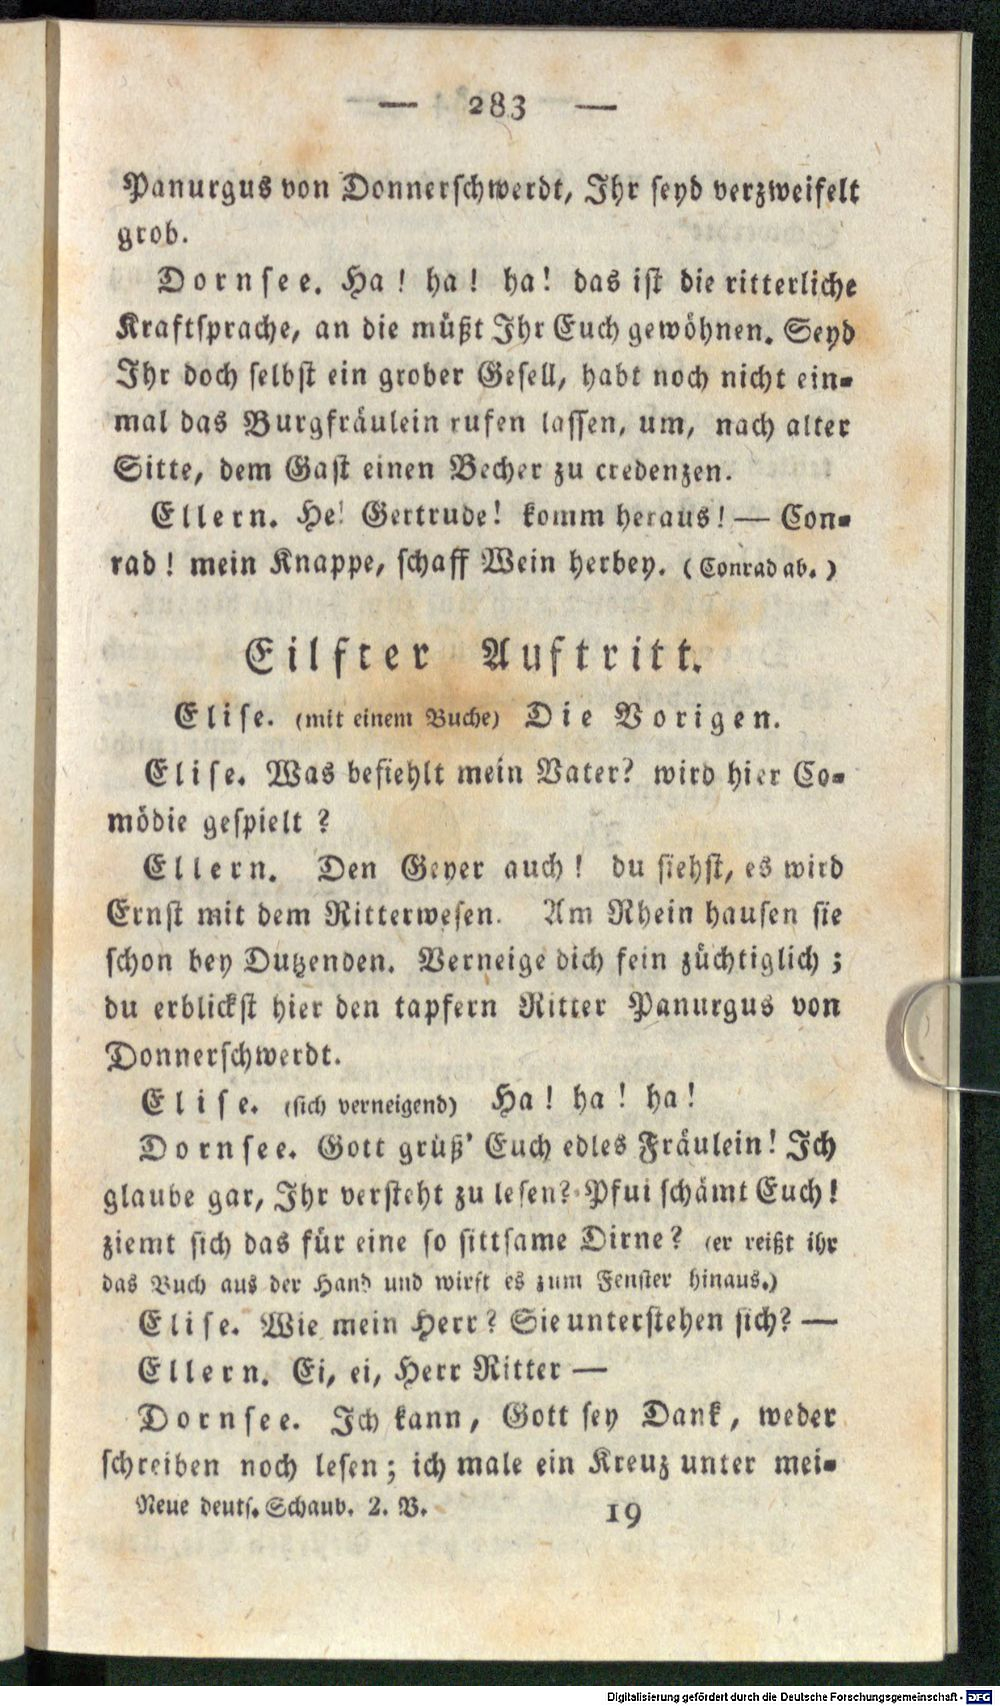 — 283 —
Panurgus von Donnerschwerdt, Ihr seyd verzweifelt
grob.
Dornsee. Ha! ha! ha! das ist die ritterliche
Kraftsprache, an die müßt Ihr Euch gewöhnen. Seyd
Ihr doch selbst ein grober Gesell, habt noch nicht ein-
mal das Burgfräulein rufen lassen, um, nach alter
Sitte, dem Gast einen Becher zu credenzen.
Ellern. He! Gertrude! komm heraus! — Con-
rad! mein Knappe, schaff Wein herbey. (Conrad ab.)
Eilfter Auftritt.
Elise. (mit einem Buche) Die Vorigen.
Elise. Was befiehlt mein Vater? wird hier Co-
mödie gespielt?
Ellern. Den Geyer auch! du siehst, es wird
Ernst mit dem Ritterwesen. Am Rhein hausen sie
schon bey Dutzenden. Verneige dich fein züchtiglich;
du erblickst hier den tapfern Ritter Panurgus von
Donnerschwerdt.
Elise. (sich verneigend) Ha! ha! ha!
Dornsee. Gott grüß' Euch edles Fräulein! Ich
glaube gar, Ihr versteht zu lesen? Pfui schämt Euch!
ziemt sich das für eine so sittsame Dirne? (er reißt ihr
das Buch aus der Hand und wirft es zum Fenster hinaus.)
Elise. Wie mein Herr? Sie unterstehen sich? —
Ellern. Ei, ei, Herr Ritter —
Dornsee. Ich kann, Gott sey Dank, weder
schreiben noch lesen; ich male ein Kreuz unter mei-
Neue deuts. Schaub. 2. B. 19
Digitalisierung gefördert durch die Deutsche Forschungsgemeinschaft - DFG